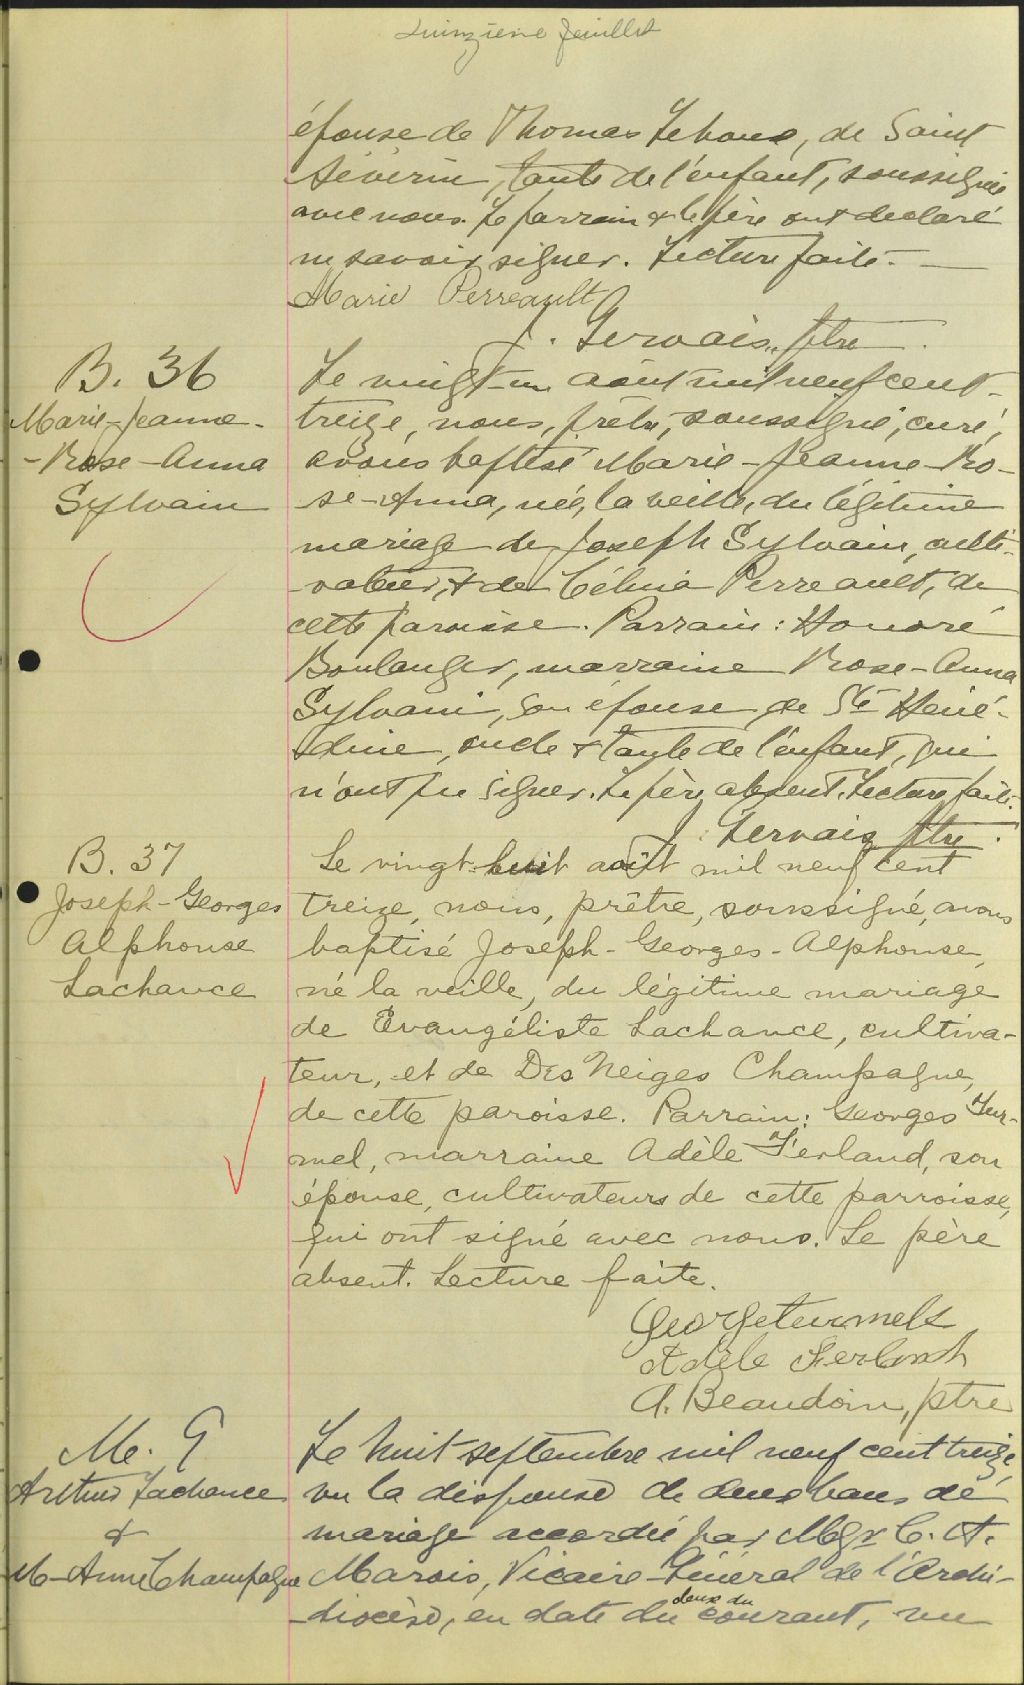 Quinzième feuillet
épouse de Thomas Lehoux, de Saint
Séverin, tante de l'enfant, soussignée
avec nous. Le parrain & le père ont déclaré
ne savoir signer. Lecture faite. —
Marie Perreault
J. Gervais, ptre.
B. 36
Marie-Jeanne-
-Rose-Anna
Sylvain
Le vingt-un août mil neuf cent-
treize, nous, prêtre, soussigné, curé,
avons baptisé Marie-Jeanne-Ro-
se-Anna, née, la veille, du légitime
mariage de Joseph Sylvain, culti-
vateur, & de Célina Perreault, de
cette paroisse. Parrain: Honoré
Boulanger, marraine Rose-Anna
Sylvain, son épouse de Ste Héné-
dine, oncle & tante de l'enfant, qui
n'ont pu signer. Le père absent. Lecture faite.
J. Gervais ptre.
B. 37
Joseph-Georges
Alphonse
Lachance
Le vingt-huit août mil neuf cent
treize, nous, prêtre, soussigné, avons
baptisé Joseph-Georges-Alphonse,
né la veille, du légitime mariage
de Évangéliste Lachance, cultiva-
teur, et de Des Neiges Champagne,
de cette paroisse. Parrain: Georges Tur-
mel, marraine Adèle Ferland, son
épouse, cultivateurs de cette parroisse,
qui ont signé avec nous. Le père
absent. Lecture faite.
George turmel
Adèle Ferland
A. Beaudoin, ptre
M. 9
Arthur Lachance
&
M-Anne Champagne
Le huit septembre mil neuf cent treize,
vu la dispense de deux bans de
mariage accordée par Mgr C. A.
Marois, Vicaire-Général de l'Archi-
-diocèse, en date du deux du courant, vu